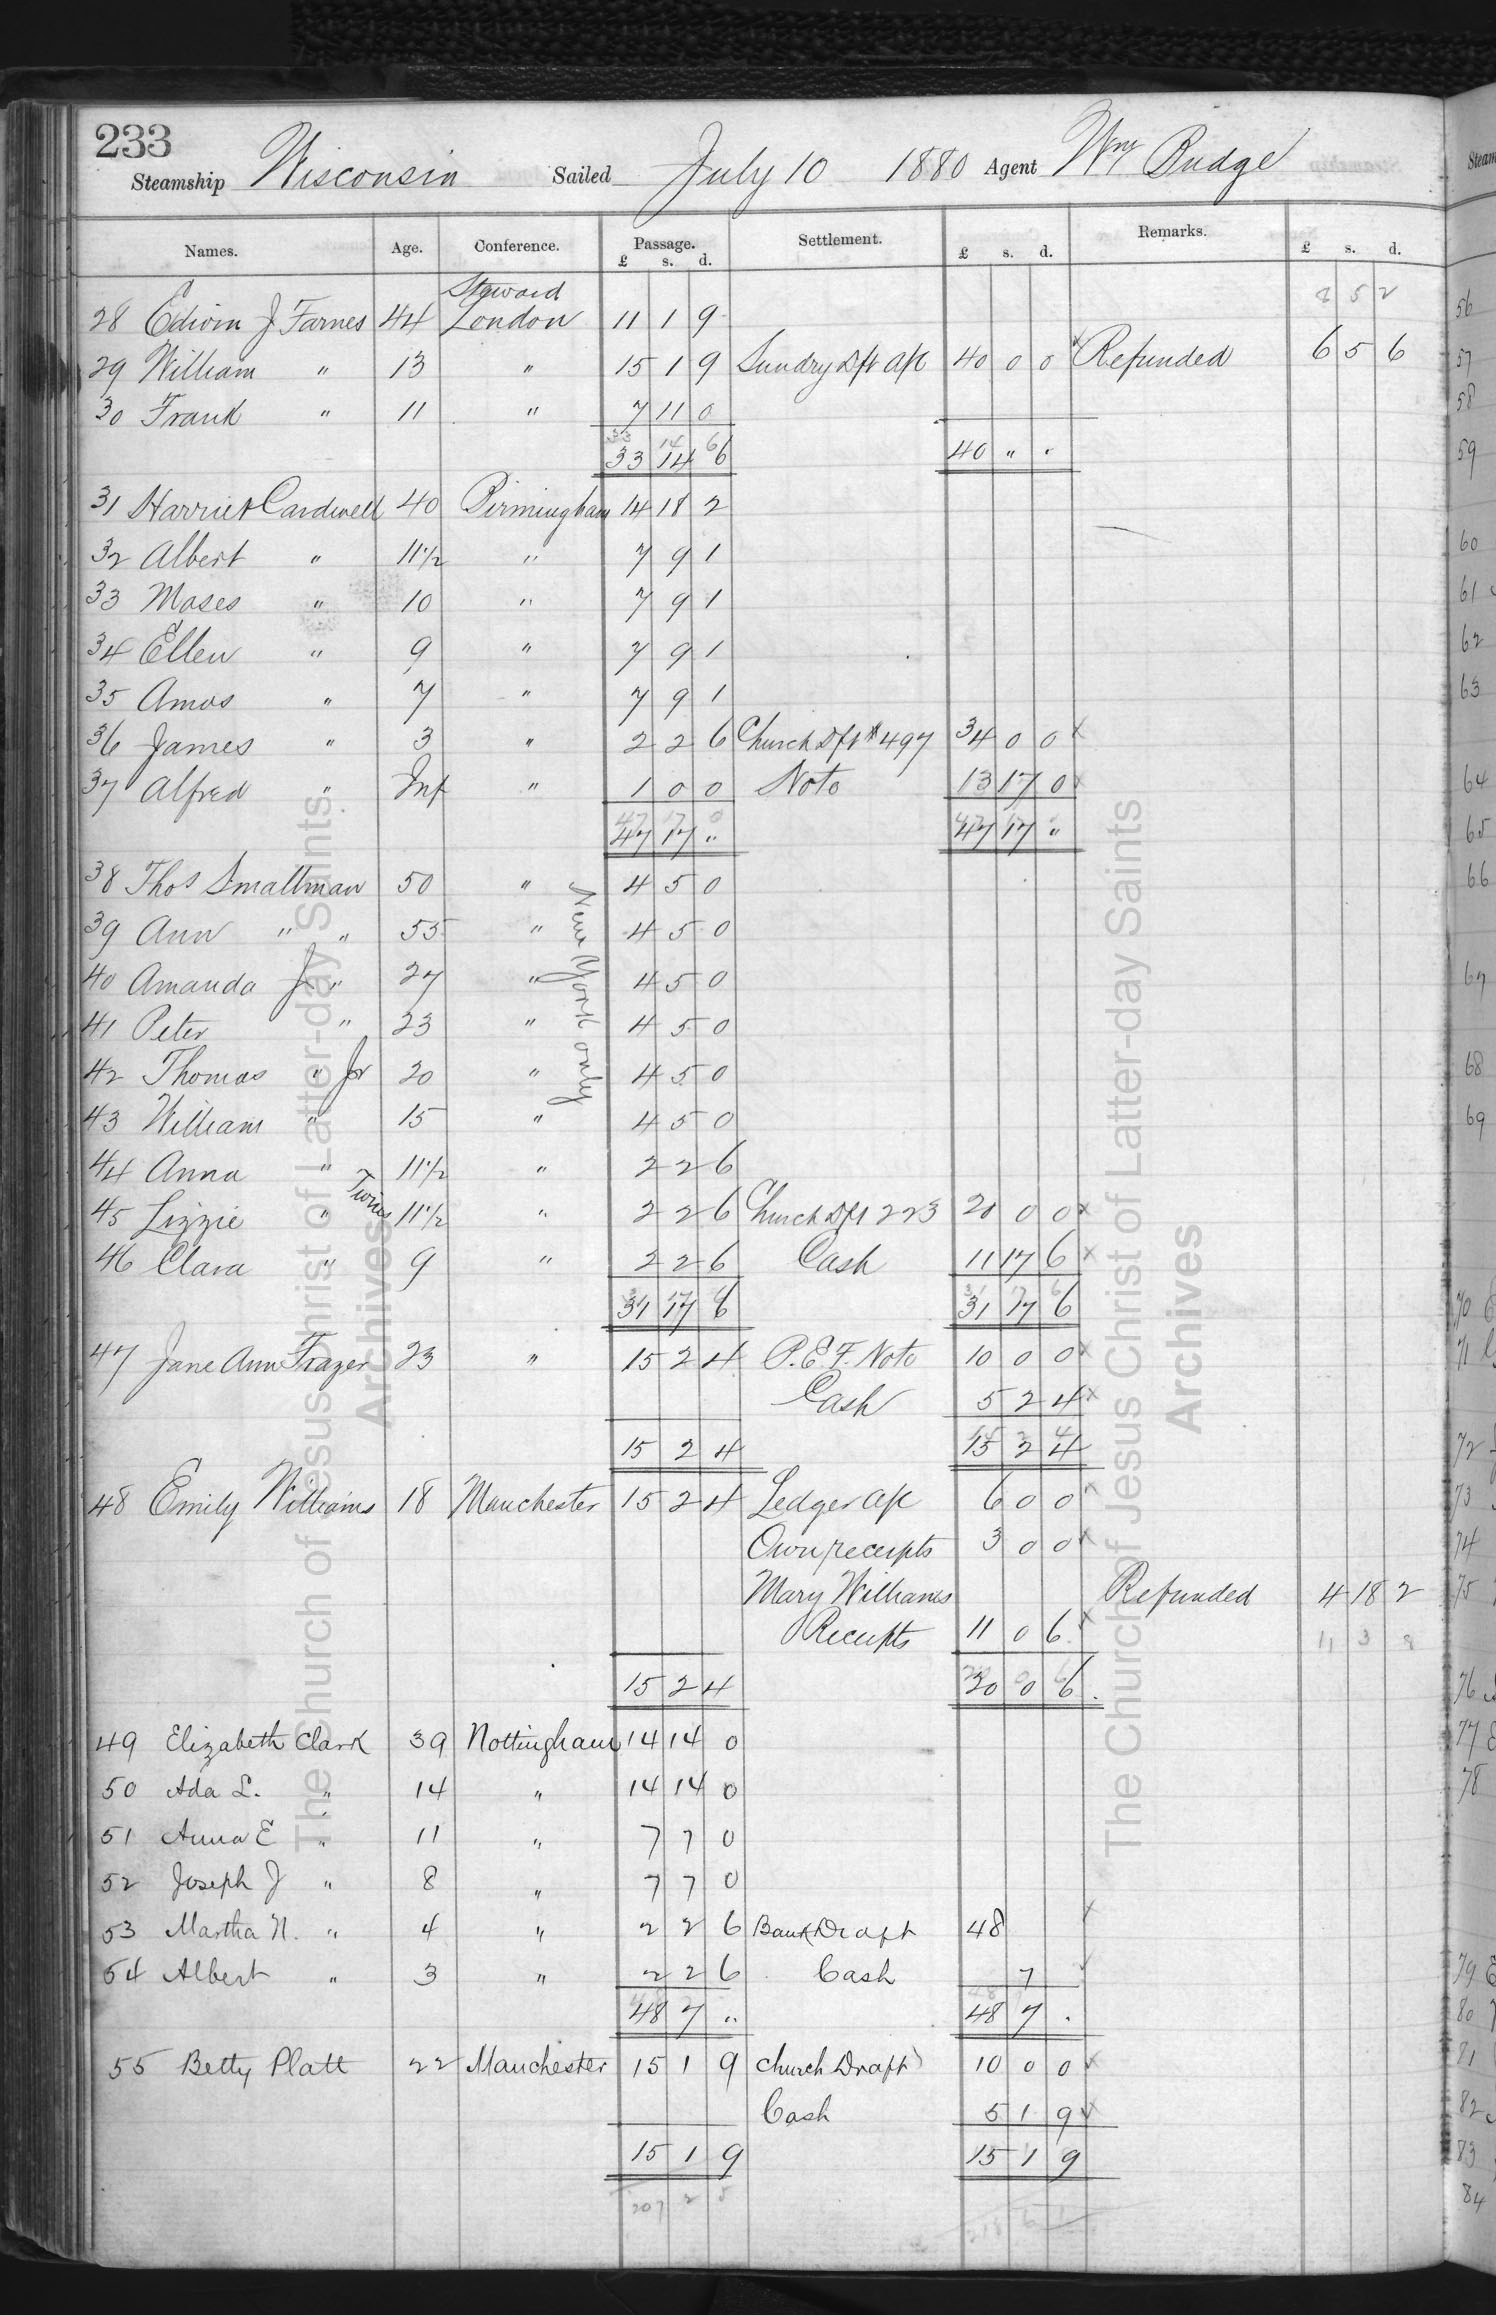 233
Steamship Wisconsin Sailed July 10 1880 Agent Wm Budge
Names. Age. Conference. Passage. £ s. d. Settlement. £ s. d. Remarks. £ s. d.
Steward
28 Edwin J Farnes 44 London 11 1 9
29 William " 13 " 15 1 9 Sundry Dft a/c 40 0 0 Refunded 6 5 6
30 Frank " 11 " 7 11 0
33 14 6 40 " "
31 Harriet Cardwell 40 Birmingham 14 18 2
32 Albert " 11 1/2 " 7 9 1
33 Moses " 10 " 7 9 1
34 Ellen " 9 " 7 9 1
35 Amos " 7 " 7 9 1
36 James " 3 " 2 2 6 Church Dft # 497 34 0 0 x
37 Alfred " Inf " 1 0 0 Note 13 17 0 x
47 17 " 47 17 "
38 Thos Smallman 50 " 4 5 0
39 Ann " " 55 " 4 5 0
40 Amanda J " 27 " 4 5 0
41 Peter " 23 " 4 5 0
42 Thomas " Jr 20 " 4 5 0
43 William " 15 " 4 5 0
New York only
44 Anna " 11 1/2 " 2 2 6
Twins
45 Lizzie " 11 1/2 " 2 2 6 Church Dft 223 20 0 0 x
46 Clara " 9 " 2 2 6 Cash 11 17 6 x
31 17 6 31 17 6
47 Jane Ann Frazer 23 " 15 2 4 P.E.F. Note 10 0 0 x
Cash 5 2 4 x
15 2 4 15 2 4
48 Emily Williams 18 Manchester 15 2 4 Ledger a/c 6 0 0 x
Own receipts 3 0 0 x
Mary Williams Refunded 4 18 2
Receipts 11 0 6 x 11 3 8
15 2 4 20 0 6
49 Elizabeth Clark 39 Nottingham 14 14 0
50 Ada L. " 14 " 14 14 0
51 Anna E " 11 " 7 7 0
52 Joseph J " 8 " 7 7 0
53 Martha N. " 4 " 2 2 6 Bank Draft 48
54 Albert " 3 " 2 2 6 Cash 7
48 7 " 48 7 .
55 Betty Platt 22 Manchester 15 1 9 Church Draft 10 0 0 x
Cash 5 1 9 x
15 1 9 15 1 9
207 2 5 218 6 1
The Church of Jesus Christ of Latter-day Saints
Archives
The Church of Jesus Christ of Latter-day Saints
Archives
56
57
58
59
60
61
62
63
64
65
66
67
68
69
70
71
72
73
74
75
76
77
78
79
80
81
82
83
84